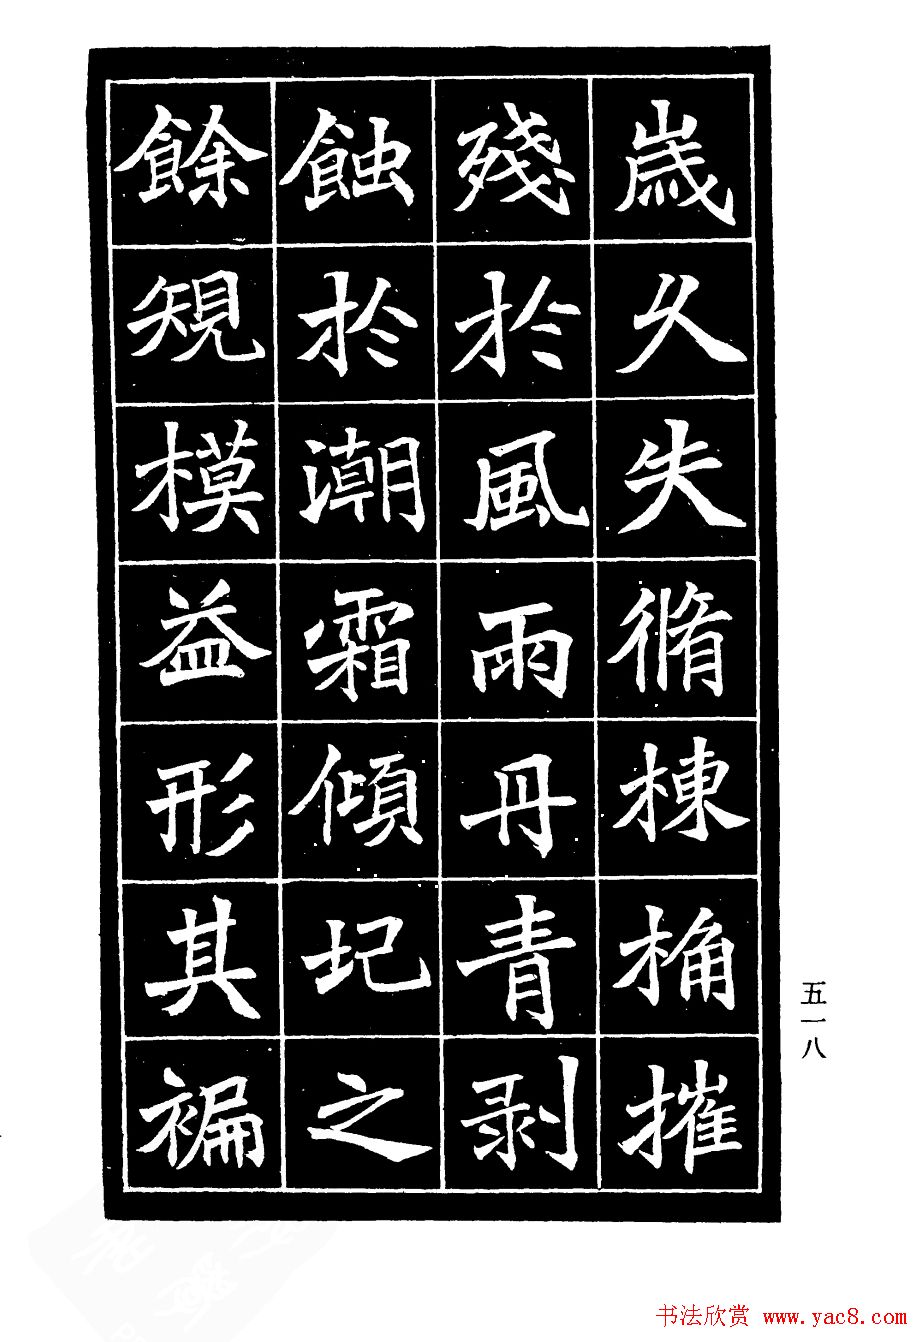 歲久失脩棟桷摧
殘於風雨丹青剥
蝕於潮霜傾圮之
餘規模益形其褊
五一八
书法欣赏 www.yac8.com